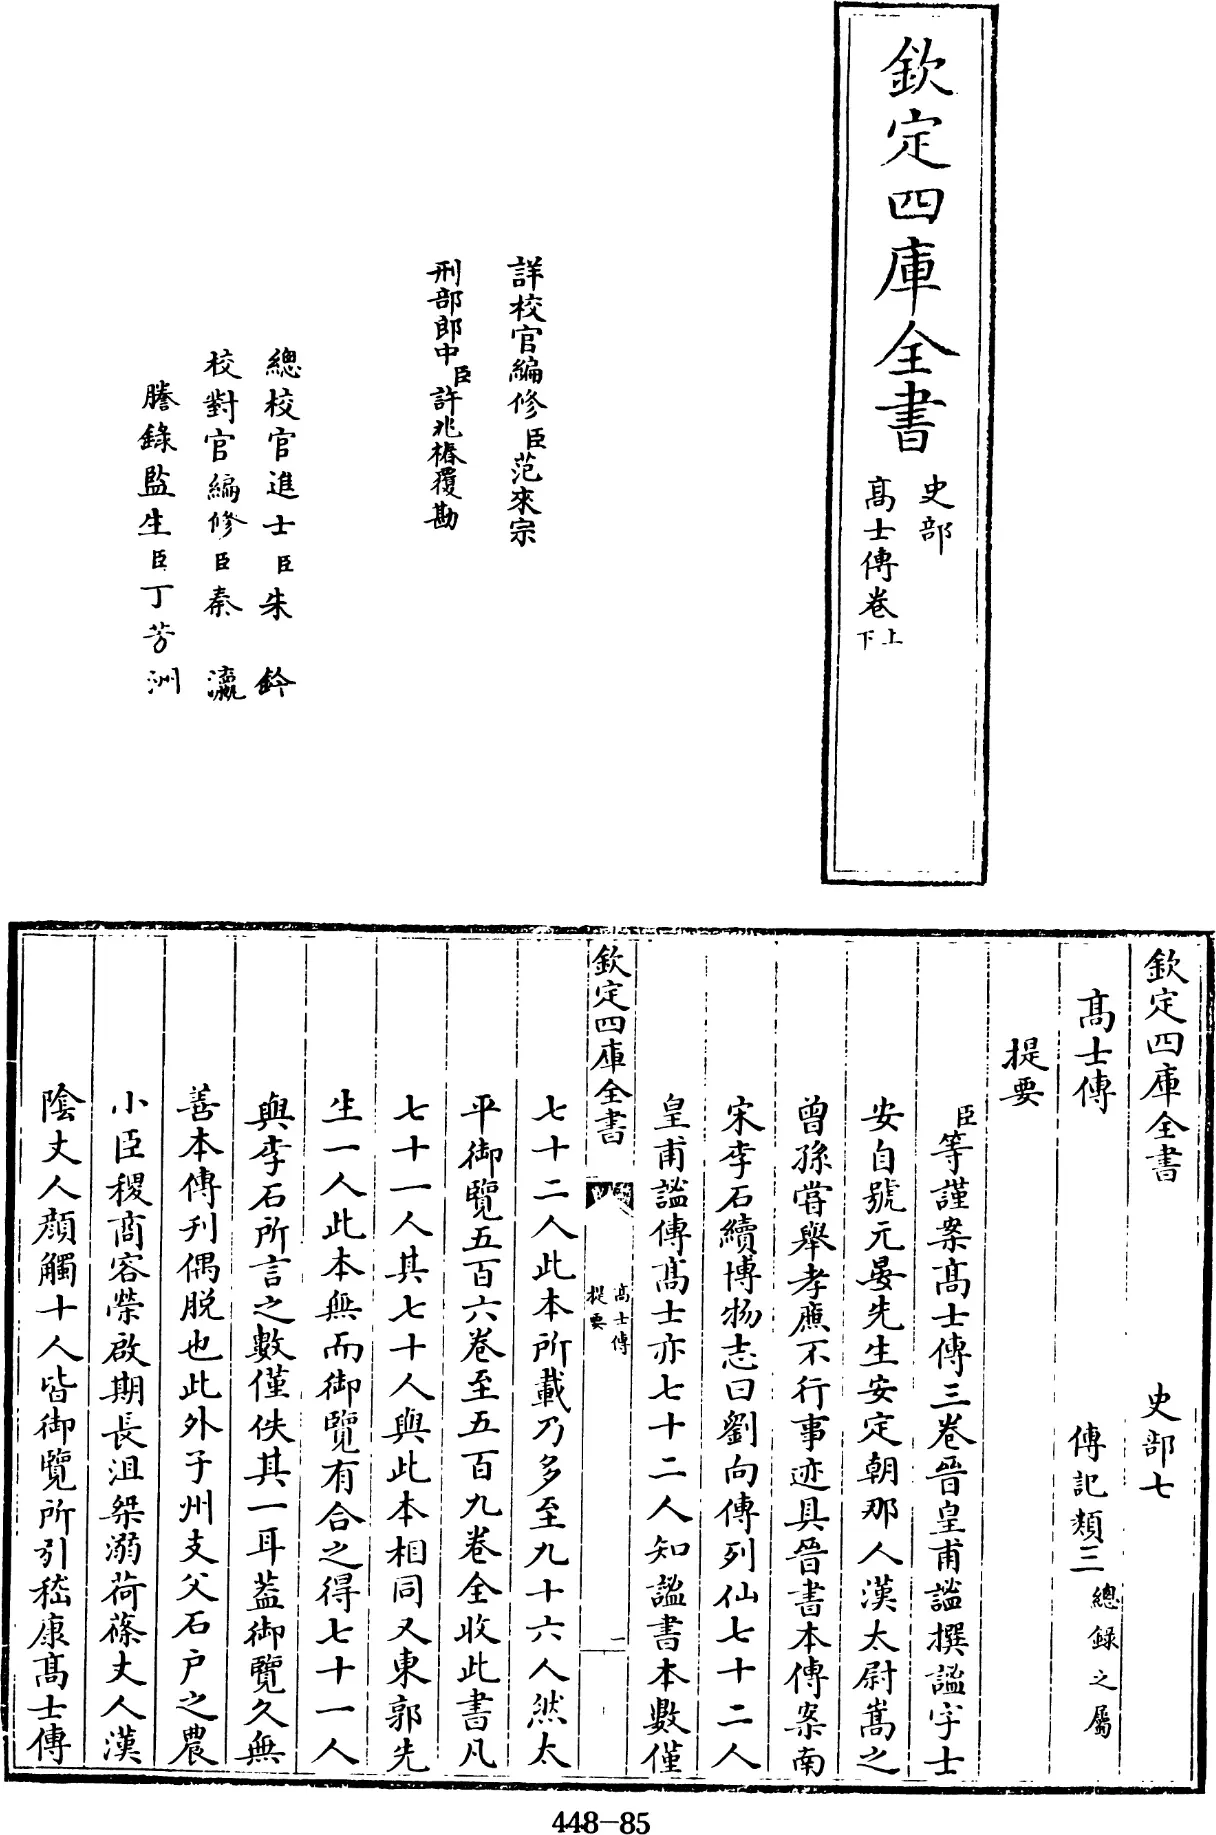 欽定四庫全書
史部
髙士傳卷上
下
詳校官編修臣范來宗
刑部郎中臣許兆椿覆勘
總校官進士臣朱鈐
校對官編修臣秦瀛
謄錄監生臣丁芳洲
欽定四庫全書 史部七
髙士傳 傳記類三總録之屬
提要
臣等謹案髙士傳三卷晉皇甫謐撰謐字士
安自號元晏先生安定朝那人漢太尉嵩之
曾孫嘗舉孝廉不行事迹具晉書本傳案南
宋李石續博物志曰劉向傳列仙七十二人
皇甫謐傳髙士亦七十二人知謐書本數僅
欽定四庫全書
髙士傳
提要
一
七十二人此本所載乃多至九十六人然太
平御覽五百六卷至五百九卷全收此書凡
七十一人其七十人與此本相同又東郭先
生一人此本無而御覽有合之得七十一人
與李石所言之數僅佚其一耳葢御覽久無
善本傳刋偶脱也此外子州支父石户之農
小臣稷商容榮啟期長沮桀溺荷蓧丈人漢
陰丈人顔觸十人皆御覽所引嵇康髙士傳
448-85